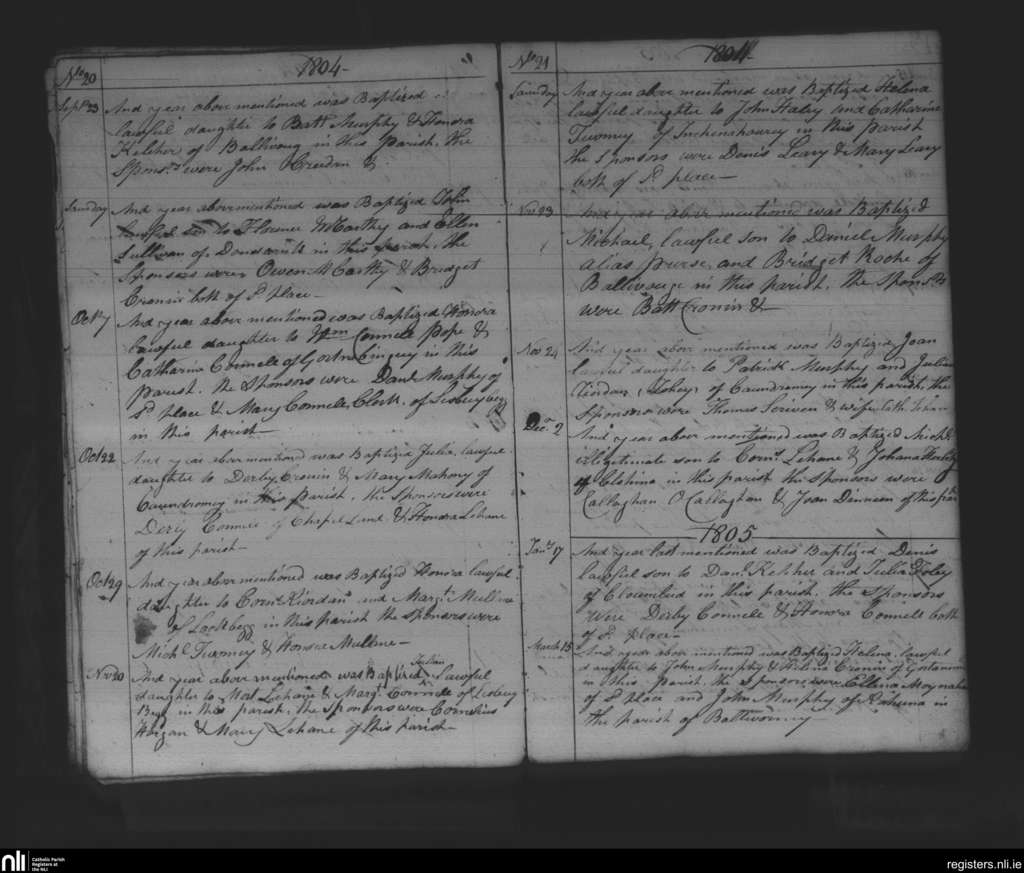 No 20
1804
Sepr 23 And year above mentioned was Baptized
lawful daughter to Batt Murphy & Honora
Kelcher of Ballivoug in this Parish. the
Sponsrs were John Creedan &
Sunday And year above mentioned was Baptized John
lawful son to Florence McCarthy and Ellen
Sullivan of in this parish. the
Sponsors were Owen McCarthy & Bridget
Cronin both of sd place
Oct 7 And year above mentioned was Baptized Honora
lawful daughter to Wm Connele Pope &
Catharine Connele of in this
Parish. the Sponsors were Danl Murphy of
sd place & Mary Connele Clerk. of
in this parish
Oct 22 And year above mentioned was Baptized Julia lawful
daughter to Darby Cronin & Mary Mahony of
Caundromey in this Parish. the Sponsors were
Derby Connele of Chapel Land & Honora Lehane
of this parish
Oct 29 And year above mentioned was Baptized Honora lawful
daughter to Corns Riordan and Margt Mullane
of Lackbegg in this parish the Sponsors were
Michl Twomey & Honora Mullane
Nov 20 And year above mentioned was Baptized Julian Lawful
daughter to Lehane & Margt Connele of Lesbuy
Begg in this parish. the Sponsors were Cornelius
Horgan & Mary Lehane of this parish
No 21
1804
Saunday And year above mentioned was Baptized Helena
lawful daughter to John Haley and Catharine
Twomey of in this Parish
the Sponsors were Denis Leary & Mary Leary
both of sd place
Nov 23 And year above mentioned was Baptized
Michael, lawful son to Daniel Murphy
alias purse, and Bridget Roche of
Ballivouge in this parish. the Sponsrs
were Batt Cronin &
Nov 24 And year above mentioned was Baptized Joan
lawful daughter to Patrick Murphy and Julian
of Caundromey in this parish. the
Sponsors were Thomas Scriven & wife Cath Lehane
Decr 2 And year above mentioned was Baptized
illegitimate son to Corns Lehane & Johana
of Clohina in this parish the sponsors were
Callaghan O Callaghan & Joan Dinneen of this parish
1805
Jany 17 And year last mentioned was Baptized Denis
lawful son to Danl Kelcher and Julia Foley
of in this parish. the Sponsors
were Derby Connele & Honora Connele both
of sd place
March 15 And year above mentioned was Baptized Helena, lawful
daughter to John Murphy & Cronin of
in this Parish. the Sponsors were Ellena Moynahan
of sd place and John Murphy of Raheena in
the parish of Ballivourney
nli
Catholic Parish
Registers at
the NLI
registers.nli.ie